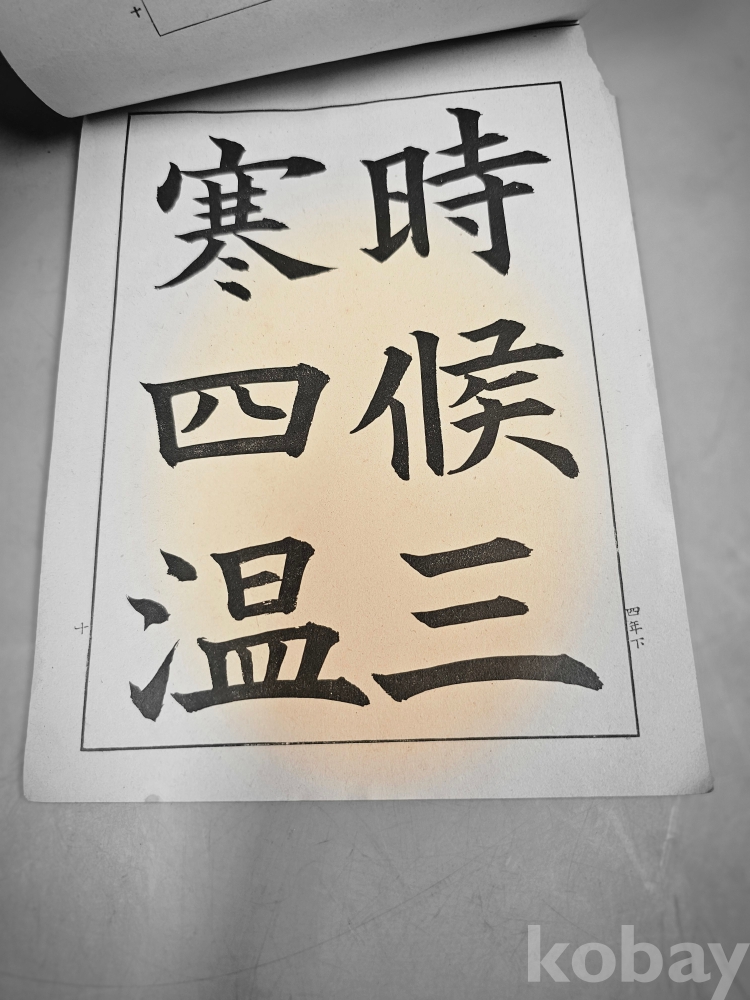 時候三
寒四温
四年下
十
十
kobay